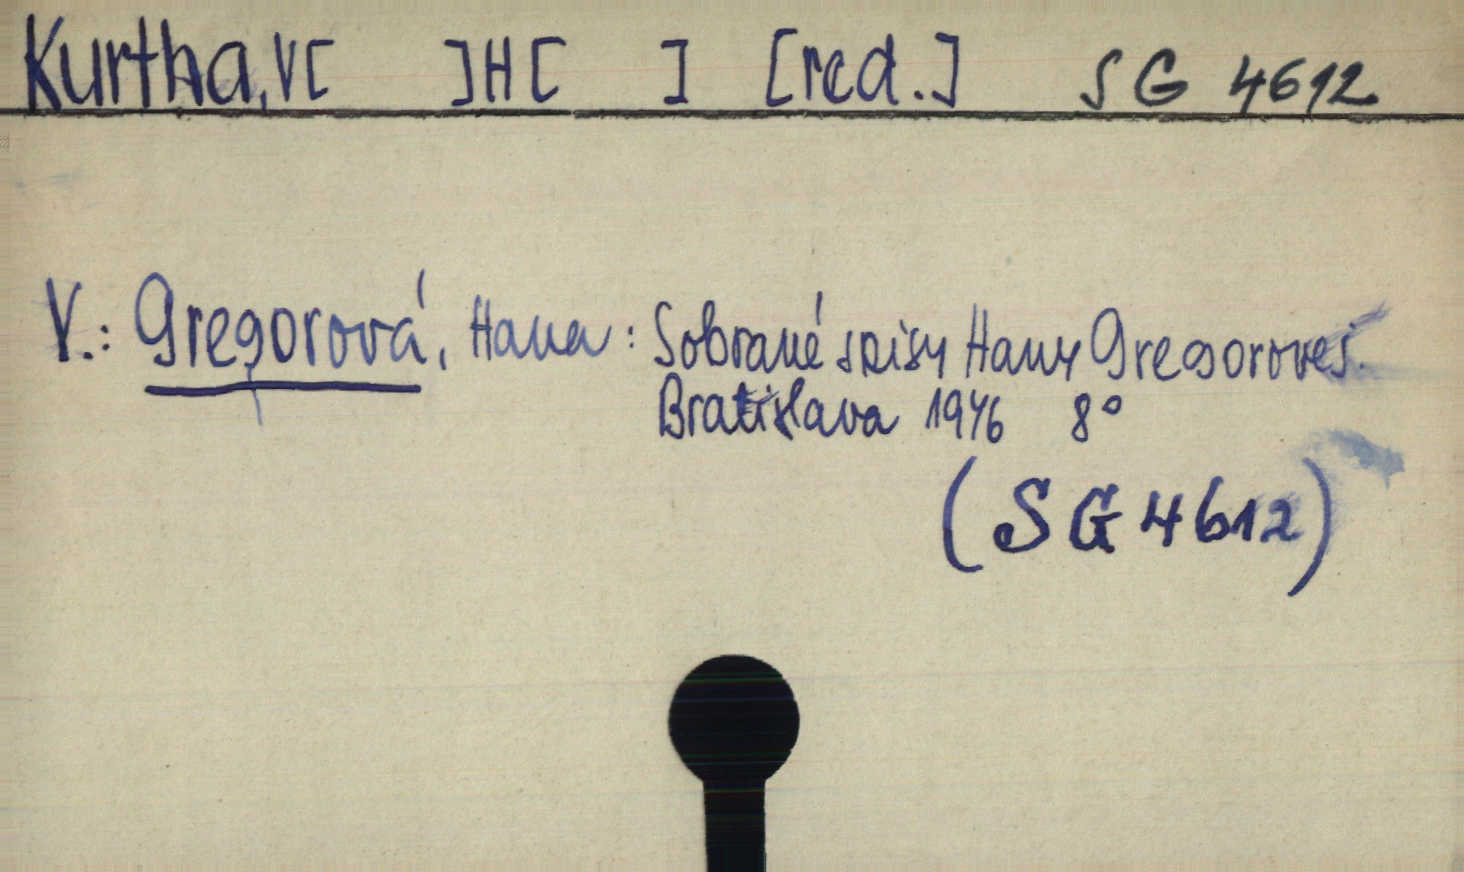 Kurtha, V[ ]H[ ] [red.] SG 4612
V.: Gregorová, Hana: Sobrané spisy Hany Gregorovej.
Bratislava 1946 8°
(SG 4612)